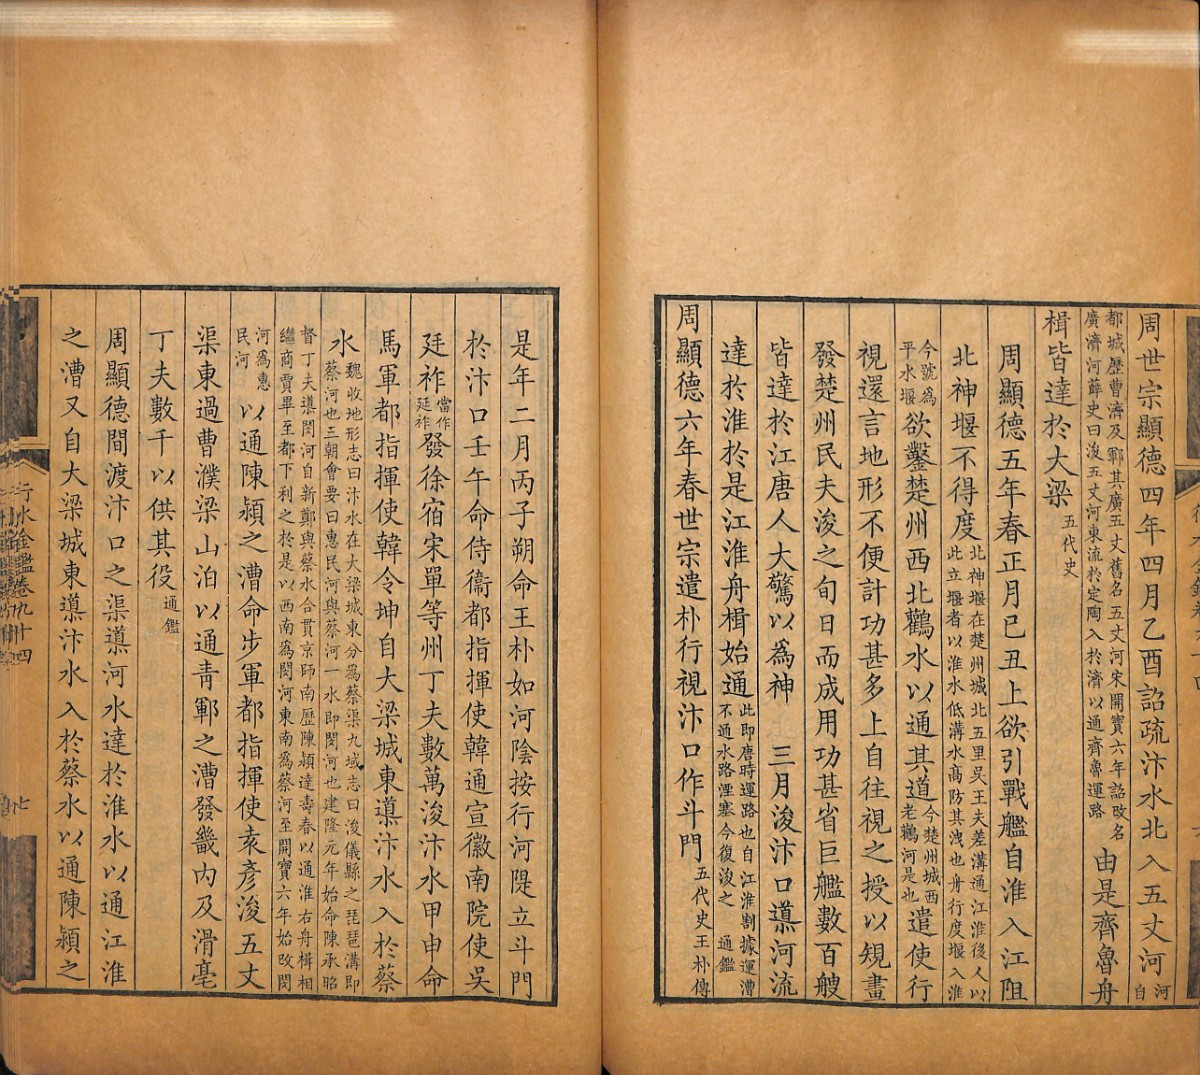 周世宗顯德四年四月乙酉詔疏汴水北入五丈河河自
都城歷曹濟及鄆其廣五丈舊名五丈河宋開寶六年詔改名廣濟河薛史曰浚五丈河東流於定陶入於濟以通齊魯運路由是齊魯舟
楫皆達於大梁五代史
周顯德五年春正月已丑上欲引戰艦自淮入江阻
北神堰不得度北神堰在楚州城北五里吳王夫差溝通江淮後人以此立堰者以淮水低溝水高防其洩也舟行度堰入淮
今號爲平水堰欲鑿楚州西北鸛水以通其道今楚州城西老鸛河是也遣使行
視還言地形不便計功甚多上自往視之授以規畫
發楚州民夫浚之旬日而成用功甚省巨艦數百艘
皆達於江唐人大驚以爲神 三月浚汴口導河流
達於淮於是江淮舟楫始通此即唐時運路也自江淮割據運漕不通水路湮塞今復浚之 通鑑
周顯德六年春世宗遣朴行視汴口作斗門五代史王朴傳
是年二月丙子朔命王朴如河陰按行河隄立斗門
於汴口壬午命侍衞都指揮使韓通宣徽南院使吳
廷祚當作延祚發徐宿宋單等州丁夫數萬浚汴水甲申命
馬軍都指揮使韓令坤自大梁城東導汴水入於蔡
水魏收地形志曰汴水在大梁城東分爲蔡渠九域志曰浚儀縣之琵琶溝即蔡河也三朝會要曰惠民河與蔡河一水即閔河也建隆元年始命陳承昭
督丁夫導閔河自新鄭與蔡水合貫京師南歷陳潁達壽春以通淮右舟楫相繼商賈畢至都下利之於是以西南爲閔河東南爲蔡河至開寶六年始改閔
河爲惠民河以通陳潁之漕命步軍都指揮使袁彥浚五丈
渠東過曹濮梁山泊以通青鄆之漕發畿內及滑亳
丁夫數千以供其役通鑑
周顯德間渡汴口之渠導河水達於淮水以通江淮
之漕又自大梁城東導汴水入於蔡水以通陳潁之
行水金鑑卷九十四
七